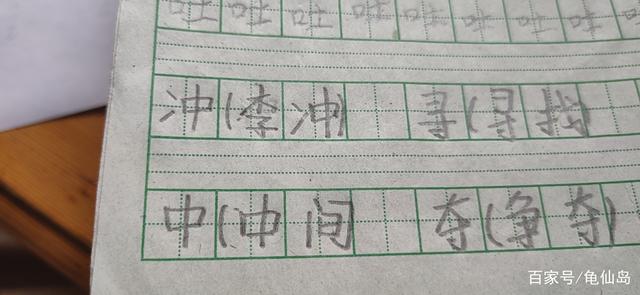 吐 吐 吐 吐 吐 吐 吐 吐
冲(李冲) 寻(寻找)
中(中间) 夺(争夺)
百家号/龟仙岛